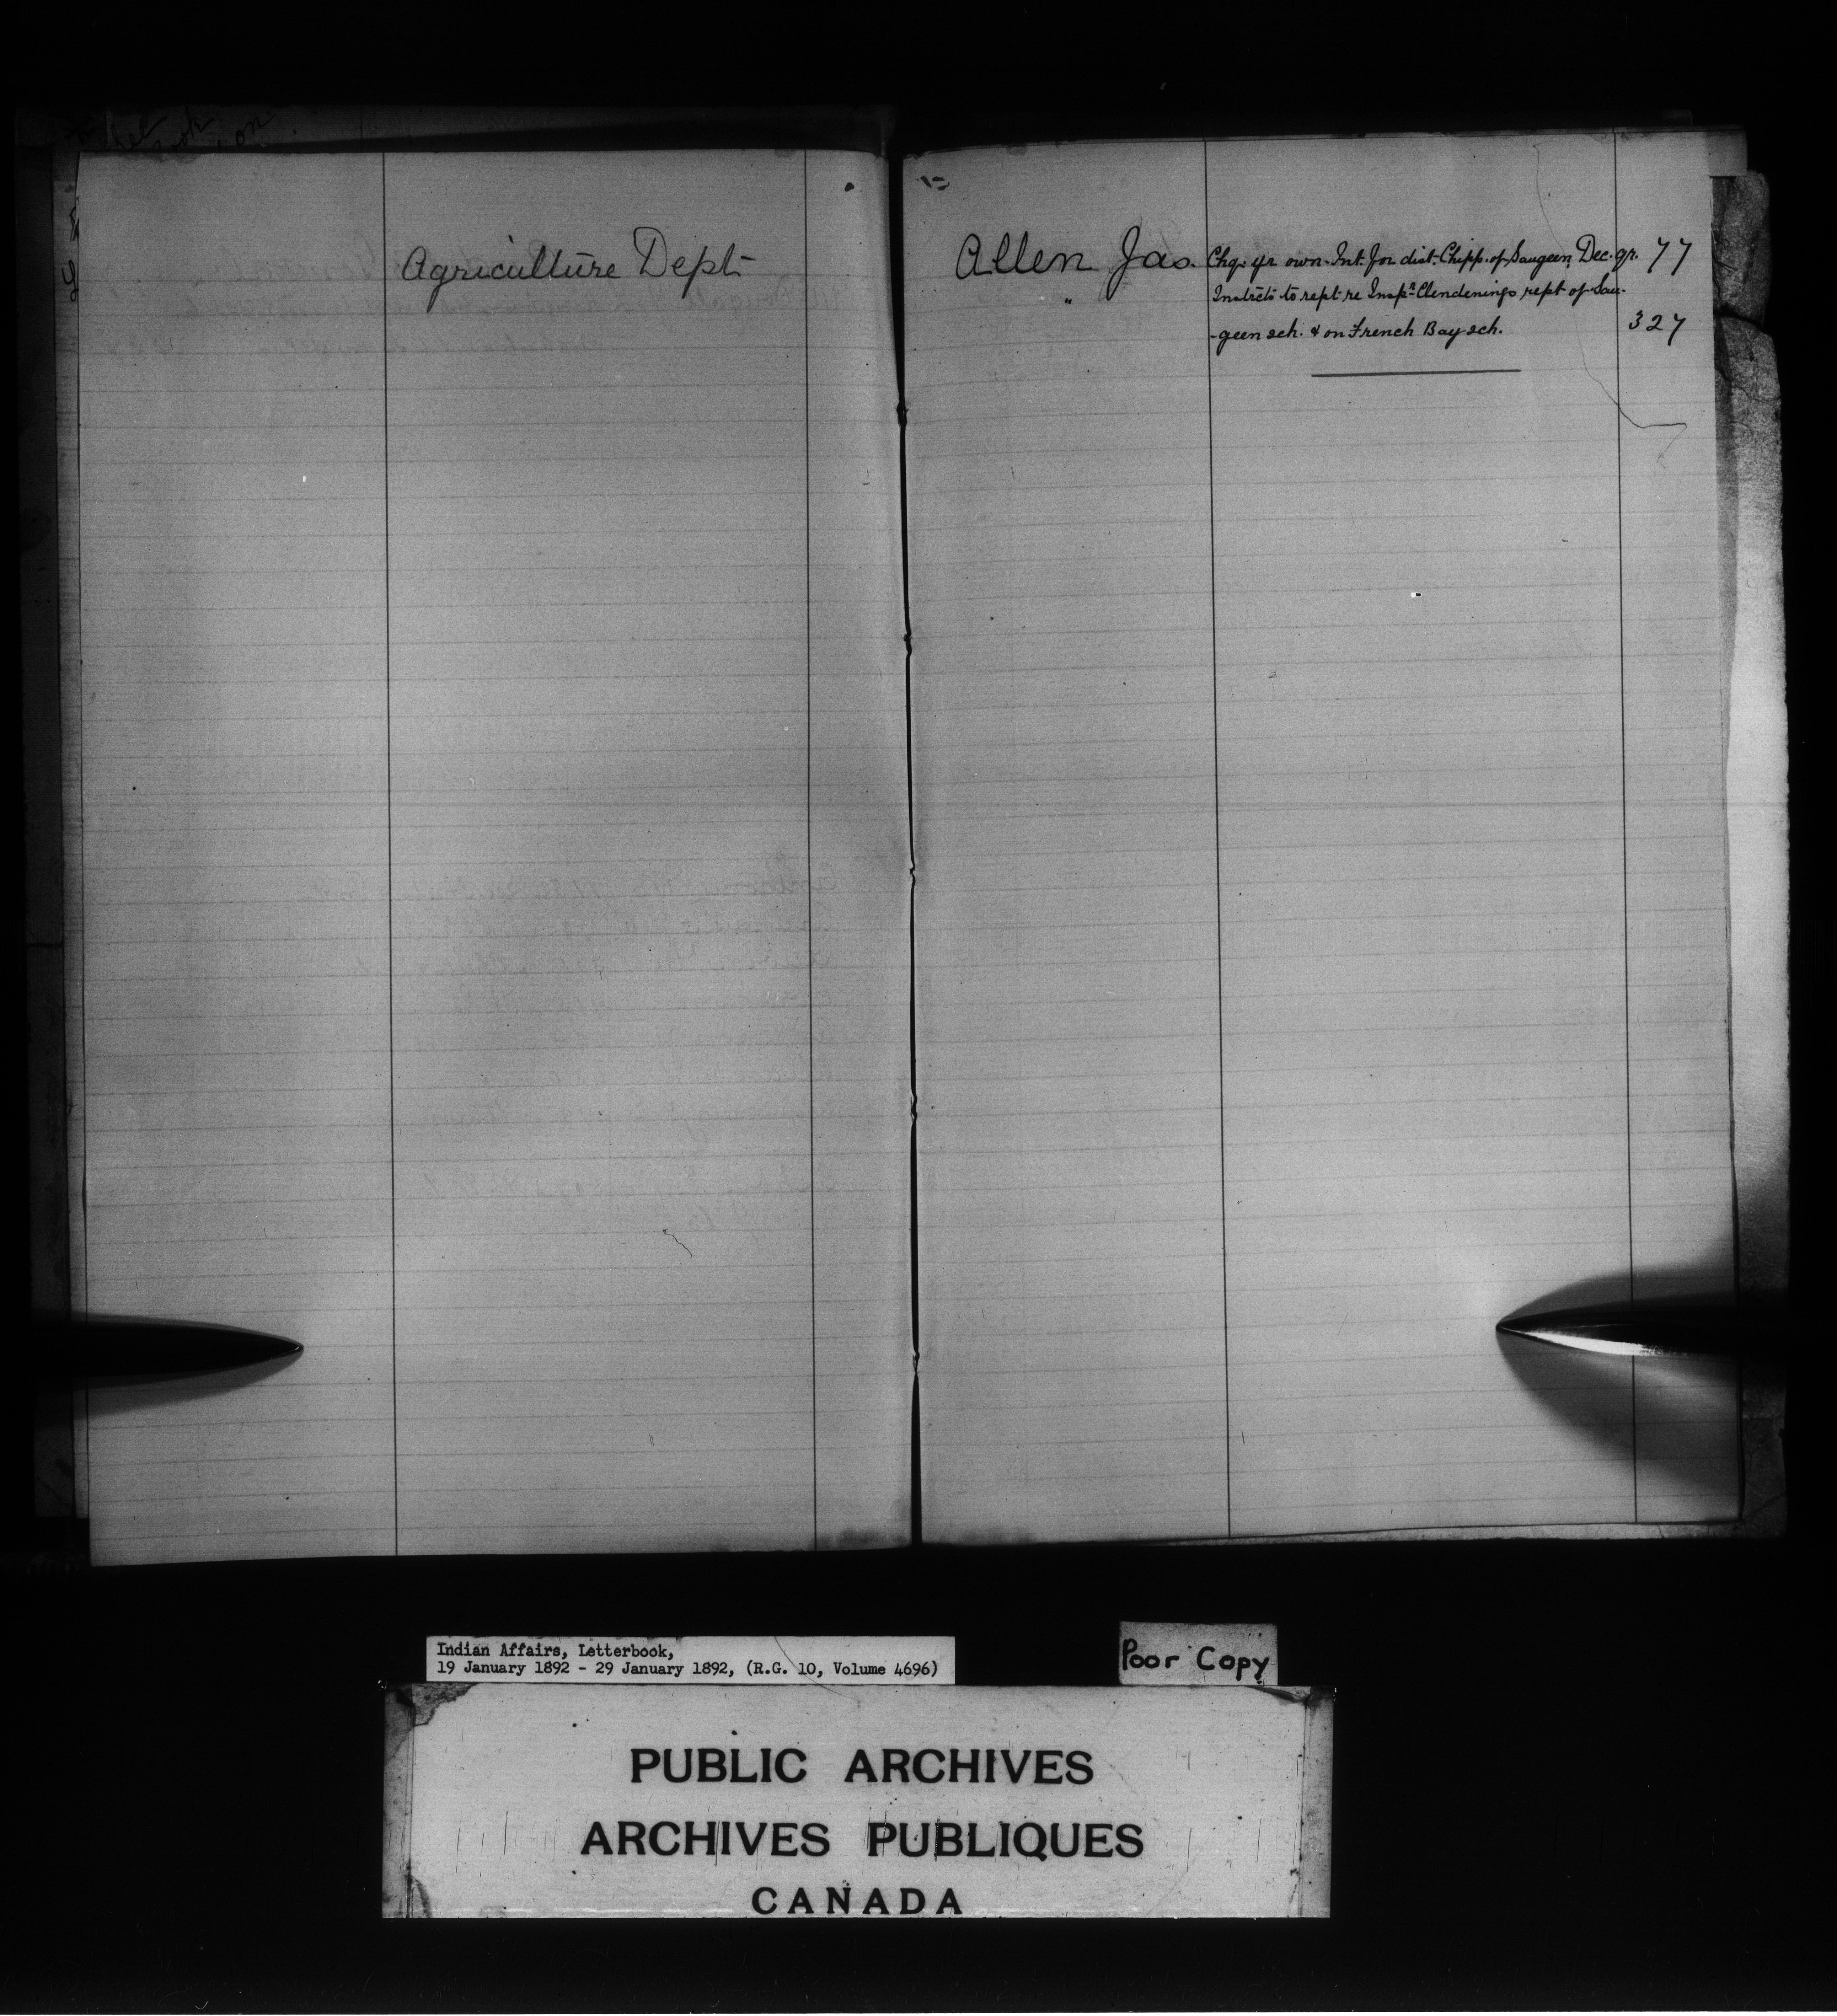 Agriculture Dept
Allen Jas. Chq. yr own. Int. for dist. Chipp. of Saugeen, Dec. qr. 77
" Instrcts to rept re Inspr. Clendenings rept of Sau-
-geen sch. & on French Bay sch. 327
Indian Affairs, Letterbook,
19 January 1892 - 29 January 1892, (R.G. 10, Volume 4696)
Poor Copy
PUBLIC ARCHIVES
ARCHIVES PUBLIQUES
CANADA